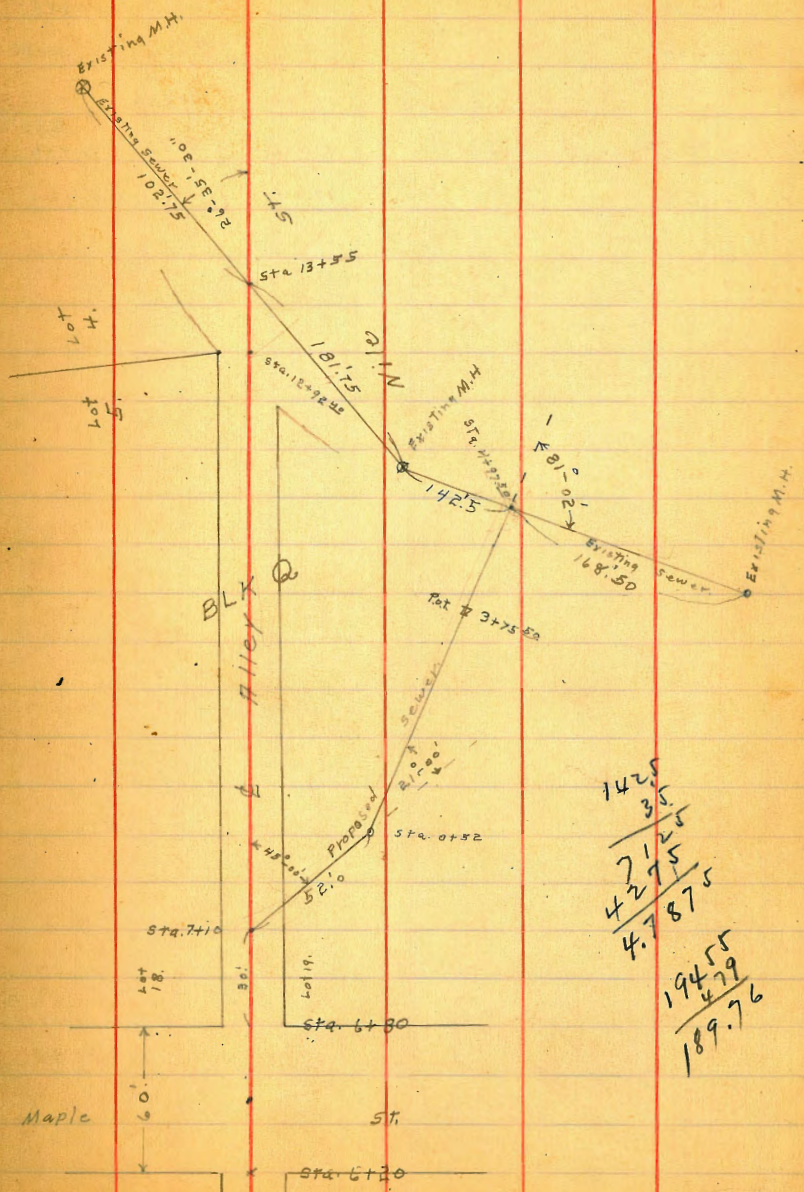 Existing M.H.
Existing sewer
102.'75
26°-35'-30"
St.
Sta 13+55
181.'75
Sta. 12+92
Lot 4.
Lot 5.
Existing M.H
142.'5
18°-02'
Existing sewer.
168.'50
Existing M.H.
BLK Q
Alley
Pot 3+75 50
Proposed sewer
21°-00'
Sta. 0+52
45°-00'
52.'0
Sta. 7+10
Lot 18.
30'
Lot 19.
Sta. 6+80
60'
Maple St.
Sta. 6+20
142.5
35
7125
4275
4.7875
19455
479
189.76